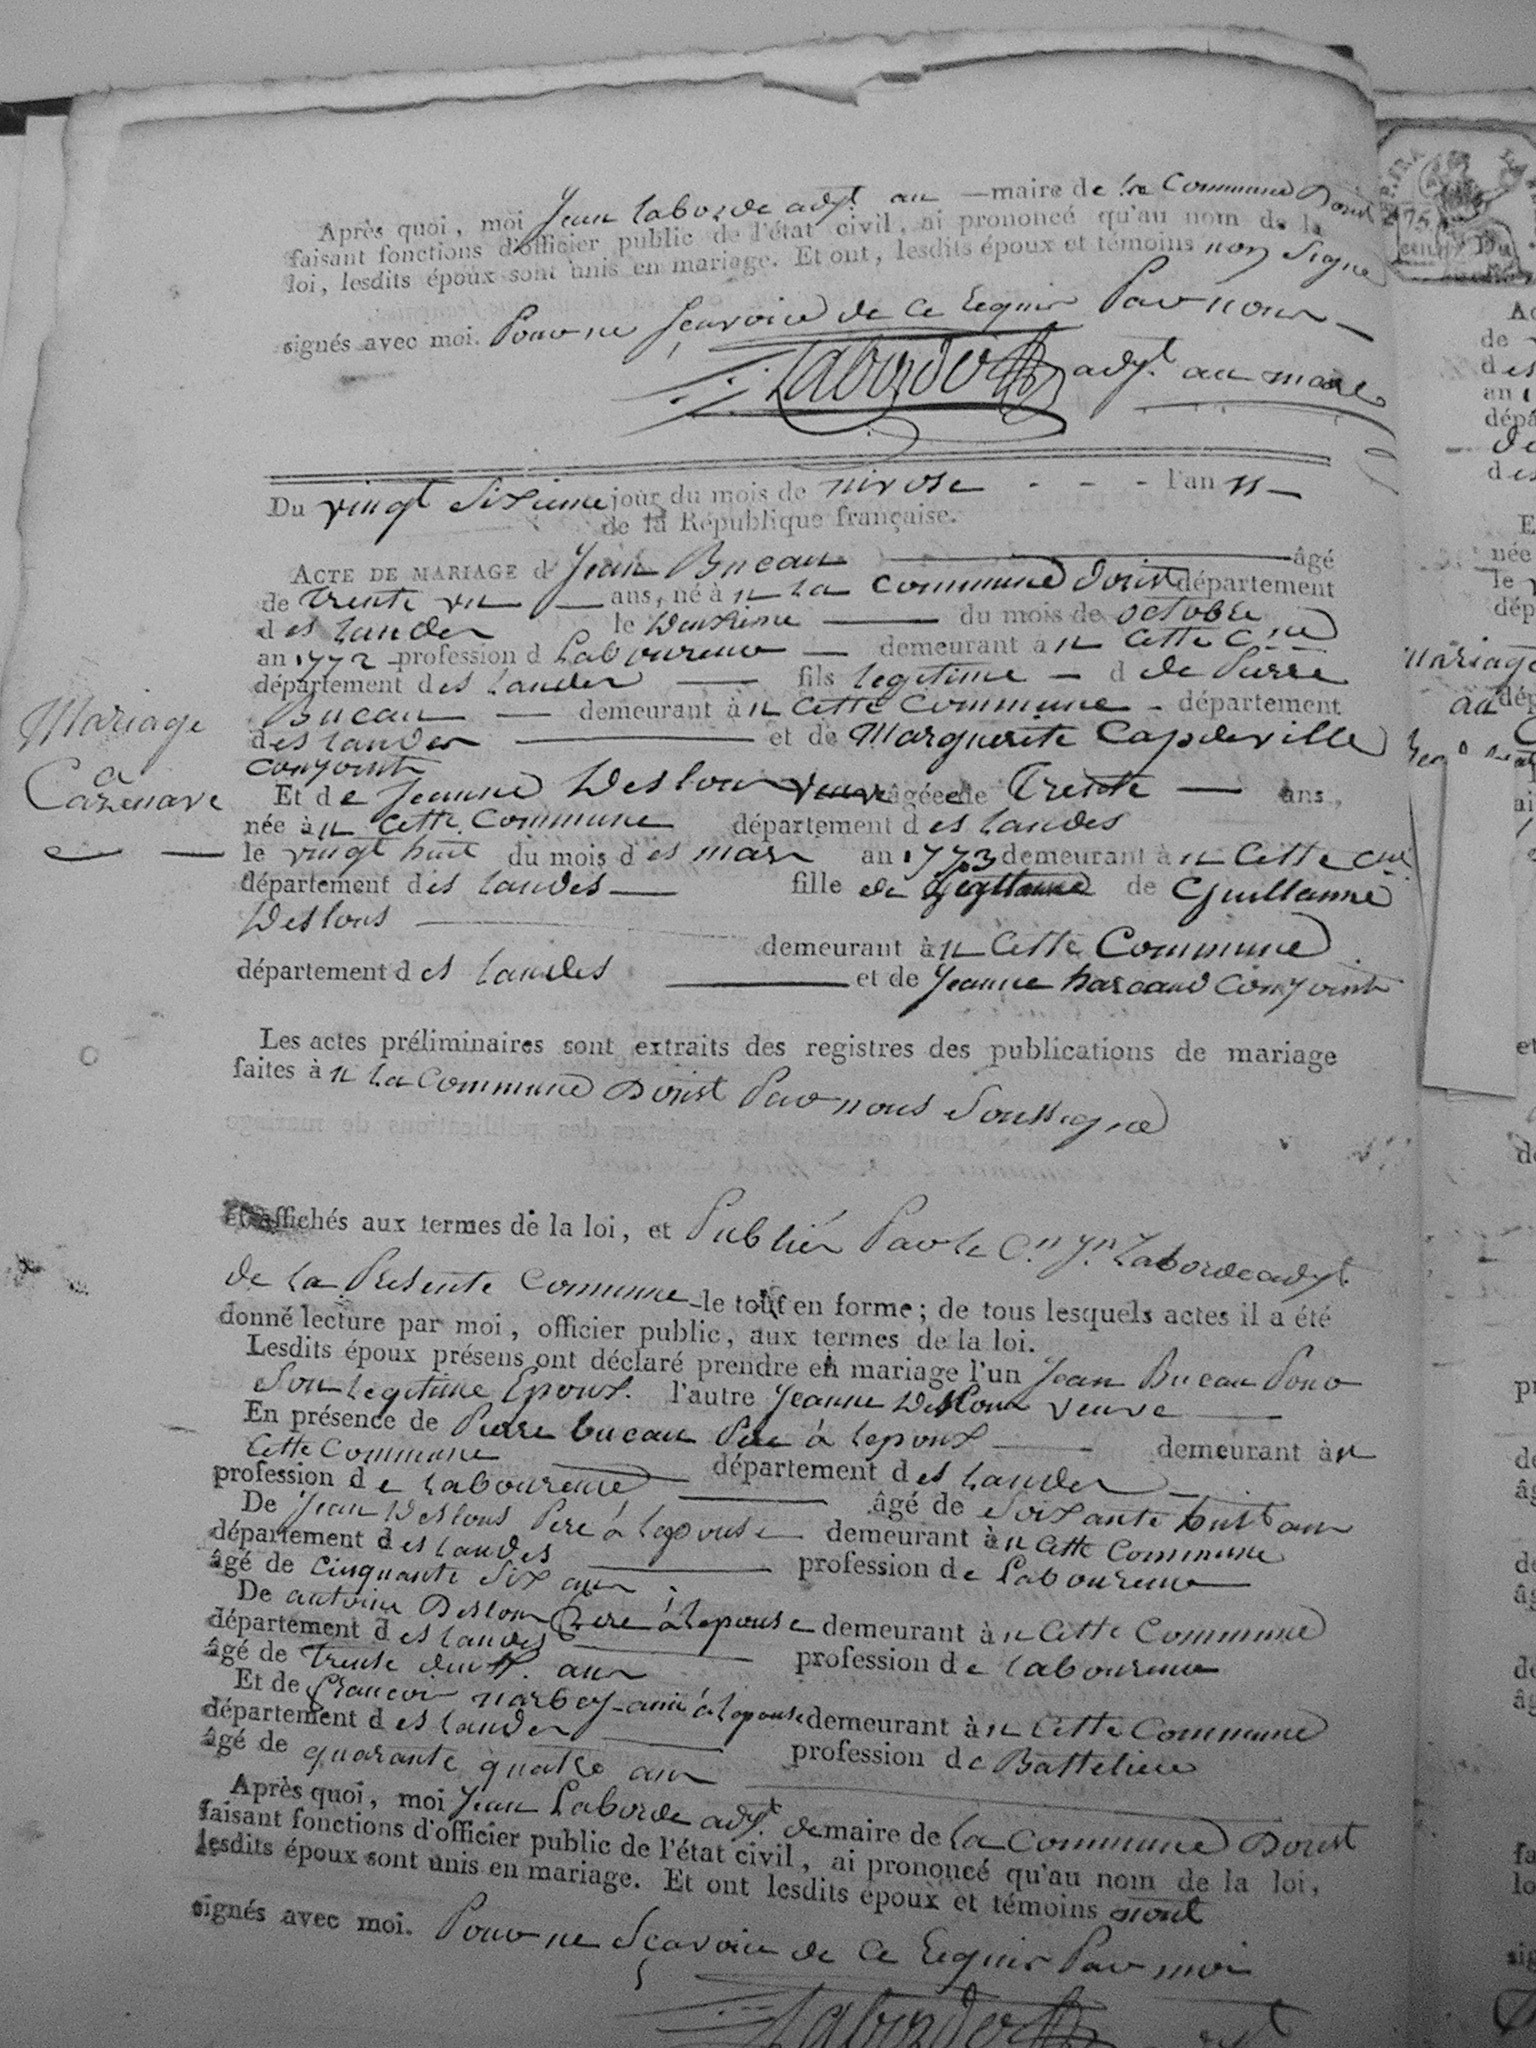 Après quoi, moi Jean Laborde adjt au maire de la Commune Dorist
faisant fonctions d'officier public de l'état civil, ai prononcé qu'au nom de la
loi, lesdits époux sont unis en mariage. Et ont, lesdits époux et témoins non Signe
signés avec moi. Pour ne sçavoir de ce requis Par nous
Laborde adjt au maire
Du vingt Sixieme jour du mois de nivose l'an 11
de la République française.
ACTE DE MARIAGE d Jean Bucau âgé
de trente un ans, né à n la Commune Dorist département
des landes le Deuxieme du mois de octobre
an 1772 profession d Laboureur demeurant à n Cette Cne
département des landes fils legitime d de Pierre
Bucau demeurant à n Cette Commune département
des landes et de Marguerite Capdeville
conjoints
Mariage
a
Cazenave
Et de Jeanne Deslous veuve âgée de Trente ans,
née à n Cette Commune département des landes
le vingt huit du mois des mars an 1773 demeurant à n Cette Cne
département des landes fille de de Guillaume
Deslous
demeurant à n Cette Commune
département des landes et de Jeanne conjoints
Les actes préliminaires sont extraits des registres des publications de mariage
faites à n la Commune Dorist Par nous Soussigné
et affichés aux termes de la loi, et Publiés Par le Cn Jn Laborde adjt
de la Presente Commune le tout en forme; de tous lesquels actes il a été
donné lecture par moi, officier public, aux termes de la loi.
Lesdits époux présens ont déclaré prendre en mariage l'un Jean Bucau Pour
Son legitime Epoux. l'autre Jeanne Deslous veuve
En présence de Pierre bucau Pere à lepoux demeurant à n
Cette Commune département des landes
profession de laboureur âgé de Soixante huit ans
De Jean Deslous Pere à lepouse demeurant à n Cette Commune
département des landes profession de Laboureur
âgé de Cinquante Six ans
De antoine Deslous frere à lepouse demeurant à n Cette Commune
département des landes profession de laboureur
âgé de trente deux ans
Et de francois narbey ami à lepouse demeurant à n Cette Commune
département des landes profession de Battelier
âgé de quarante quatre ans
Après quoi, moi Jean Laborde adjt de maire de la Commune Dorist
faisant fonctions d'officier public de l'état civil, ai prononcé qu'au nom de la loi,
lesdits époux sont unis en mariage. Et ont lesdits époux et témoins nont
signés avec moi. Pour ne Sçavoir de ce requis Par moi
Laborde